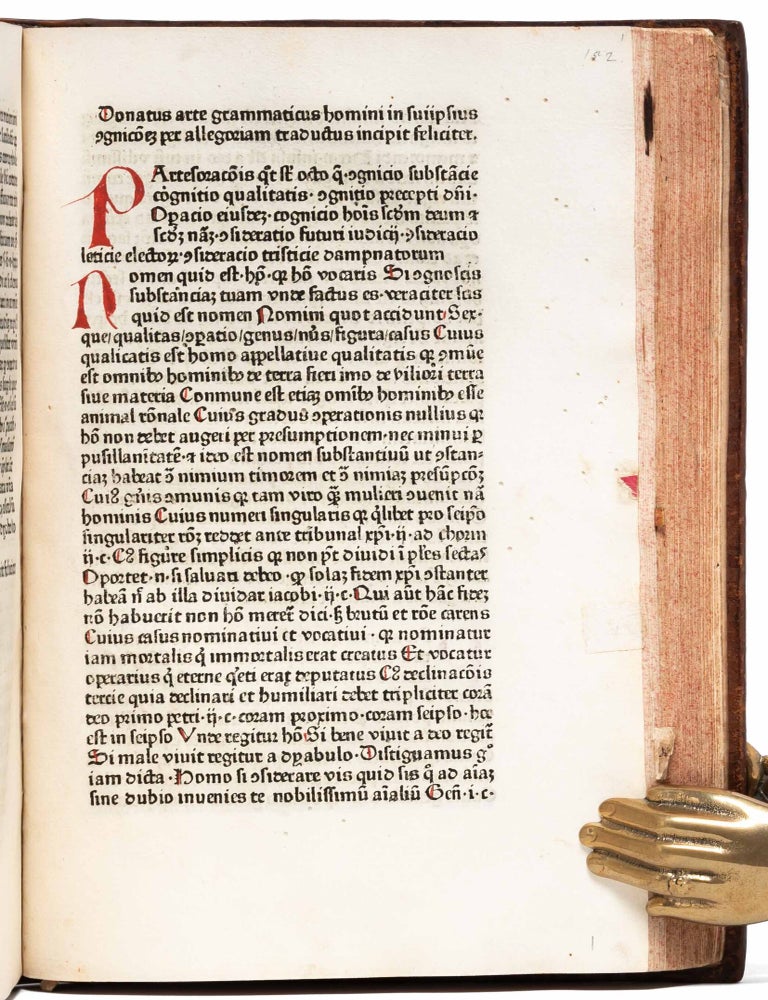 152
Donatus arte grammaticus homini in suiipsius
ꝯgnicōeꝫ per allegoriam traductus incipit feliciter.
PArtesoracōis qͥt sē octo q̄·ꝯgnicio substācie
cōgnitio qualitatis· ꝯgnitio precepti dn̄i·
Oꝑacio eiusdeꝫ· cognicio hoīs scd̄m deum ⁊
scd̄ꝫ nāꝫ·ꝯsideratio futuri iudicij·ꝯsideracio
leticie electoꝝ·ꝯsideracio tristicie dampnatorum
Nomen quid est·hō·qꝛ hō vocatis Si ꝯgnoscis
substānciaꝫ tuam vnde factus es·veraciter scis
quid est nomen Nomini quot accidunt Sex·
que/qualitas/ꝯꝑatio/genus/nūs/figura/casus Cuius
qualicatis est homo appellatiue qualitatis qꝛ ꝯmūe
est omnibꝰ hominibꝰ de terra fieri imo de viliori terra
siue materia Conmune est etiaꝫ omībꝰ hominibꝰ esse
animal rōnale Cuiꝰs gradus ꝯperationis nullius qꝛ
hō non debet augeri per presumptionem·nec minui ꝑ
pusillanītatē·⁊ ideo est nomen substantiuū ut ꝯstan⸗
ciaꝫ habeat ꝯ̄ nimium timorem et ꝯ̄ nimiaꝫ presūpcōꝫ
Cuiꝰ gn̄is ꝯmunis qꝛ tam viro qꝫ̄ mulieri ꝯuenit nā
hominis Cuius numeri singularis qꝛ qͥlibet pro seip̄o
singulariter rōꝫ reddet ante tribunal xp̄i·ij·ad chorin
ij·c·Cꝰ figūre simplicis qꝛ non pt̄ diuidi ī ples sectas
Oportet·n·si saluari debeo·ꝙ solaꝫ fidem xp̄i ꝯstanter
habeā n̄ ab illa diuidar iacobi·ij·c·Qui aūt hāc fideꝫ
nō habuerit non hō meret̄ dici·sꝫ brutū et rōe carens
Cuius casus nominatiui et vocatiui · qꝛ nominatur
iam mortalis qͥ immortalis erat creatus Et vocatur
operarius qͥ eterne qͥeti erat deputatus Cꝰ declinacōis
tercie quia declinari et humiliari debet tripliciter corā
deo primo petri·ij·c·coram proximo·coram seipso·hoc
est in seipso Vnde regitur hō Si bene viuit a deo regit̄
Si male viuit regitur a dyabulo·Distiguamus gͦ
iam dicta·Homo si ꝯsiderare vis quid sis qͦ ad aīaꝫ
sine dubio inuenies te nobilissimū aīaliū Gen̄·i·c·